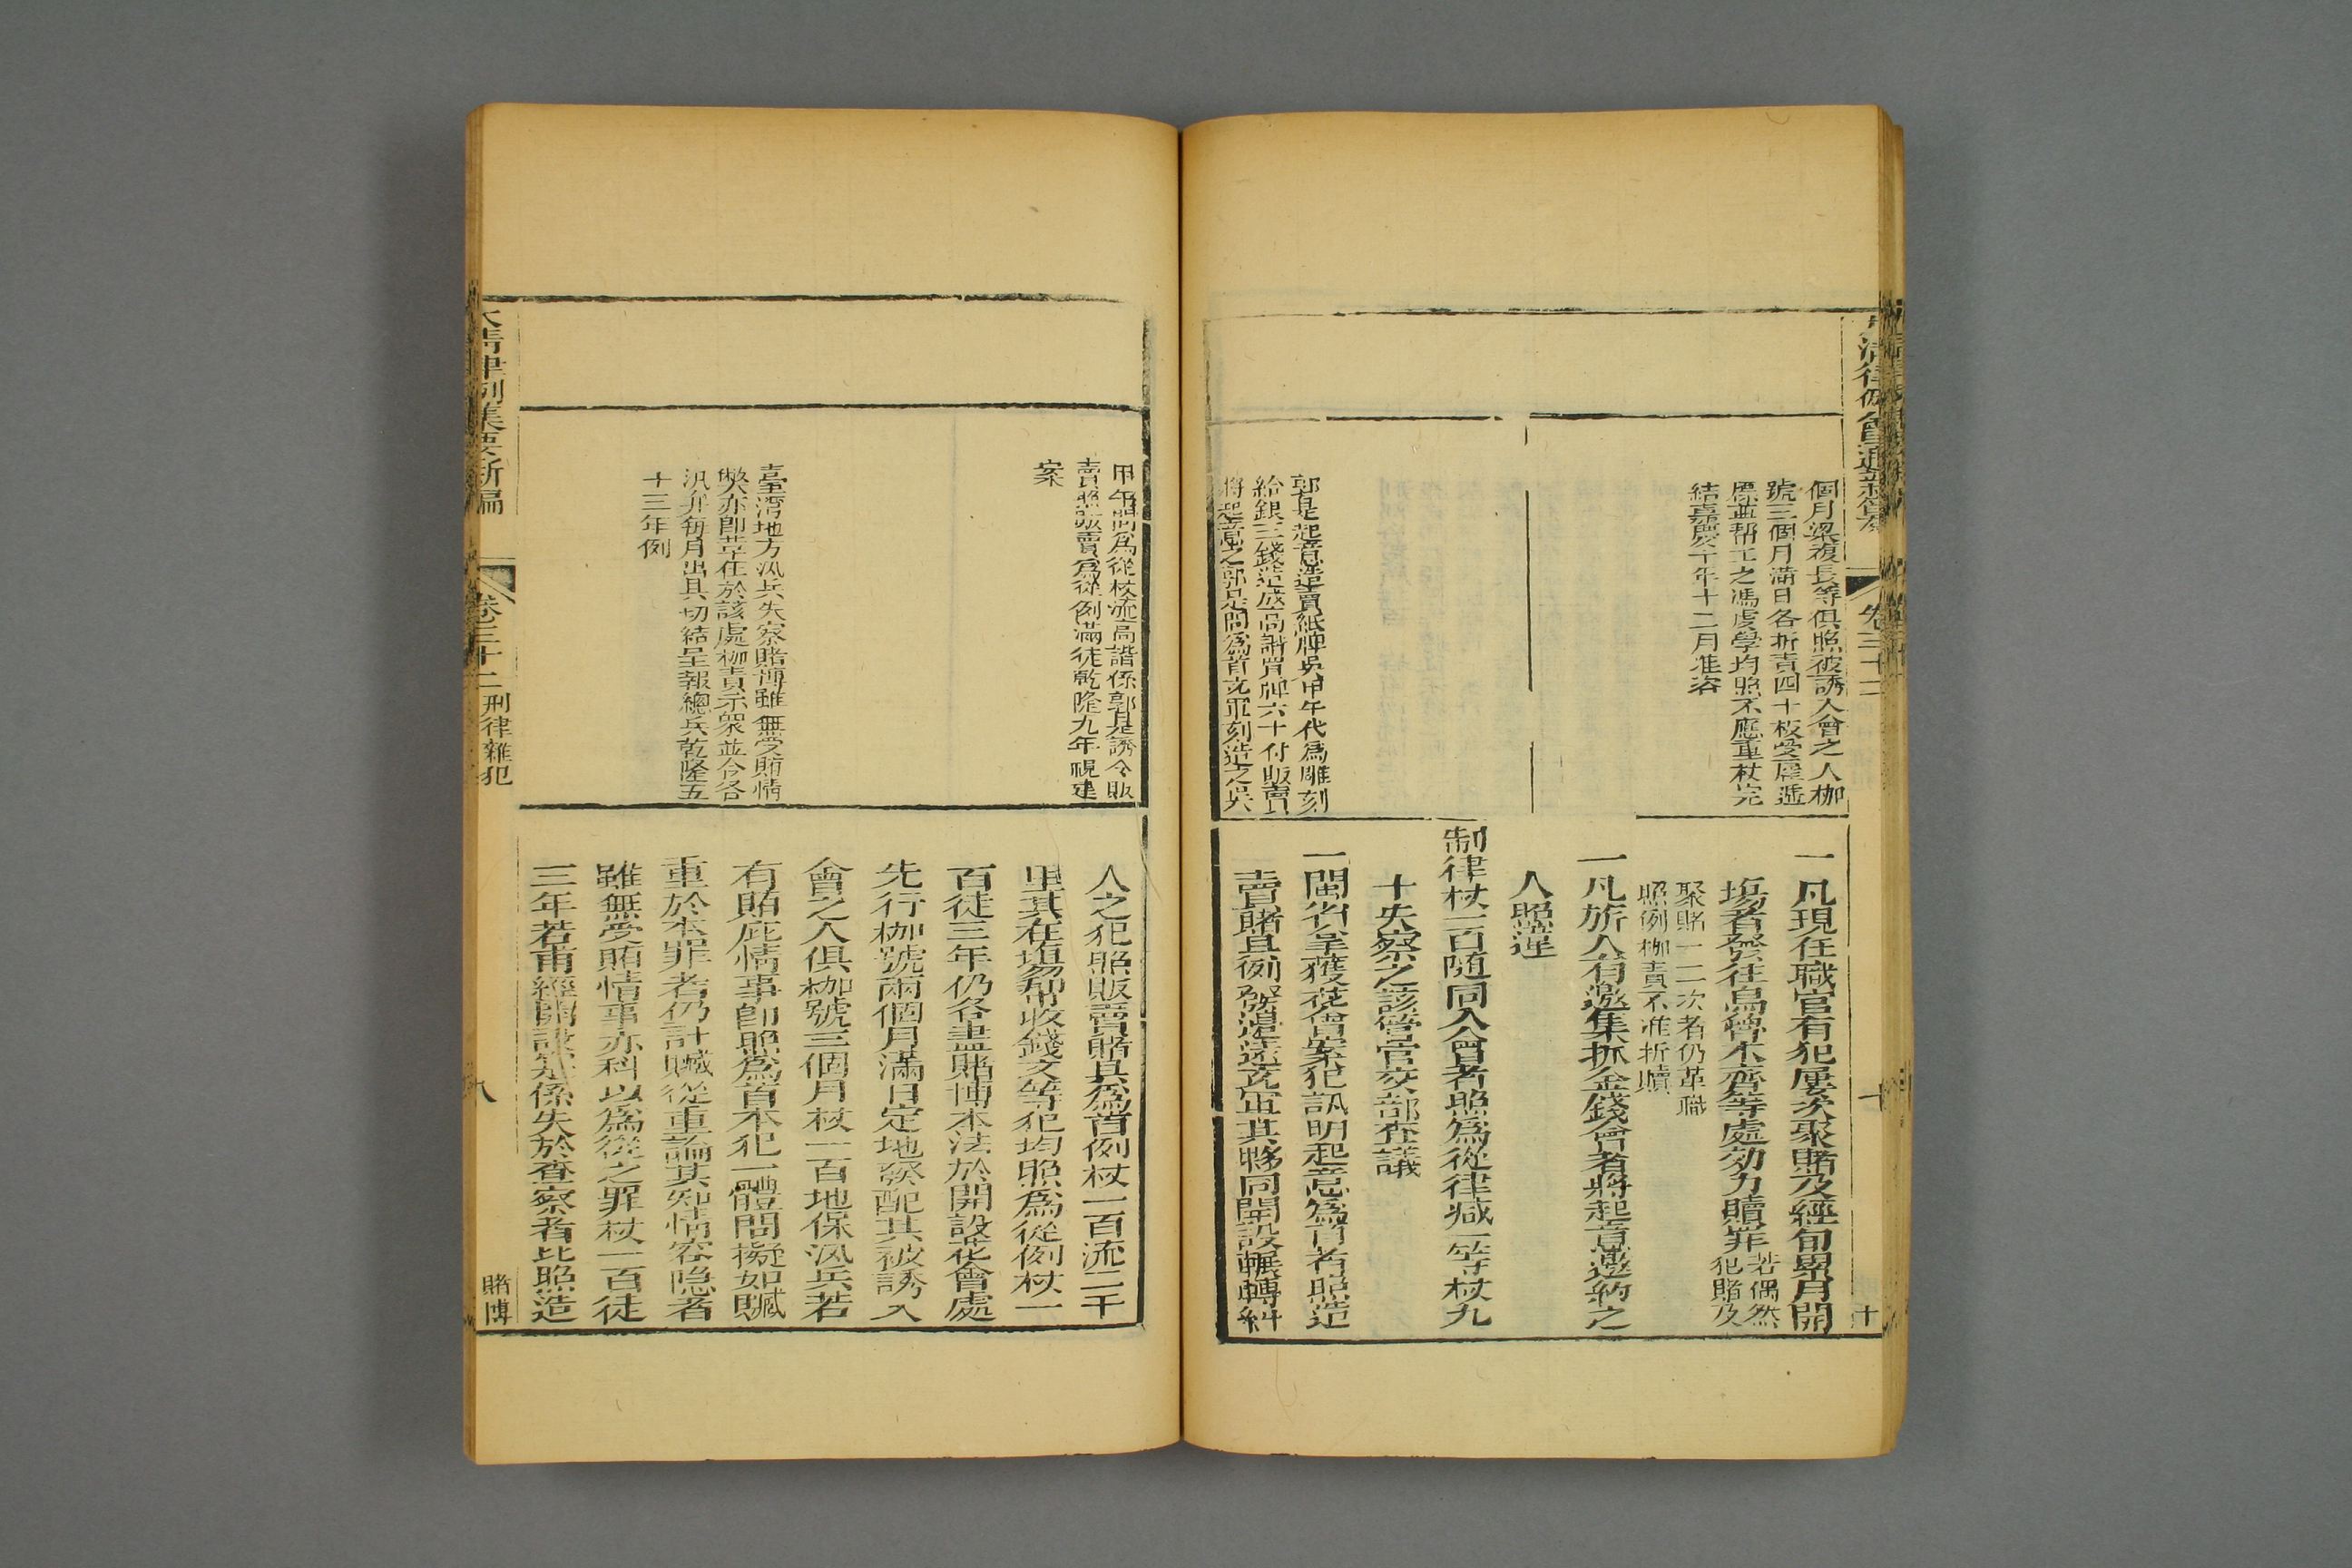 個月梁複長等俱照被誘入會之人枷
號三個月滿日各折責四十板受雇遞
票並帮工之馮虔學均照不應重杖完
結嘉慶十年十二月准咨
郭是起意造賣紙牌吳甲午代為雕刻
給銀三錢造成高諧買牌六十付販賣
將起意之郭是問為首充軍刻造之吳
一凡現任職官有犯屢次聚賭及經旬累月開
塲者發往烏魯木齊等處効力贖罪若偶然犯賭及
聚賭一二次者仍革職
照例枷責不准折贖
一凡旂人有邀集抓金錢會者將起意邀約之
人照違
制律杖一百隨同入會者照為從律減一等杖九
十失察之該管官交部查議
一閩省拿獲花會案犯訊明起意為首者照造
賣賭具例發邊遠充軍其夥同開設輾轉糾
甲午問為從杖流高諧係郭是誘令販
賣照販賣為從例滿徒乾隆九年現建
案
臺灣地方汛兵失察賭博雖無受賄情
弊亦卽革任於該處枷責示衆並令各
汛弁每月出具切結呈報總兵乾隆五
十三年例
人之犯照販賣賭具為首例杖一百流二千
里其在塲帮收錢文等犯均照為從例杖一
百徒三年仍各盡賭博本法於開設花會處
先行枷號兩個月滿日定地發配其被誘入
會之人俱枷號三個月杖一百地保汛兵若
有賄庇情事卽照為首本犯一體問擬如贓
重於本罪者仍計贓從重論其知情容隱者
雖無受賄情事亦科以為從之罪杖一百徒
三年若甫經開設實係失於查察者比照造
大清律例集要新編
卷三十二
刑律雜犯
八
賭博